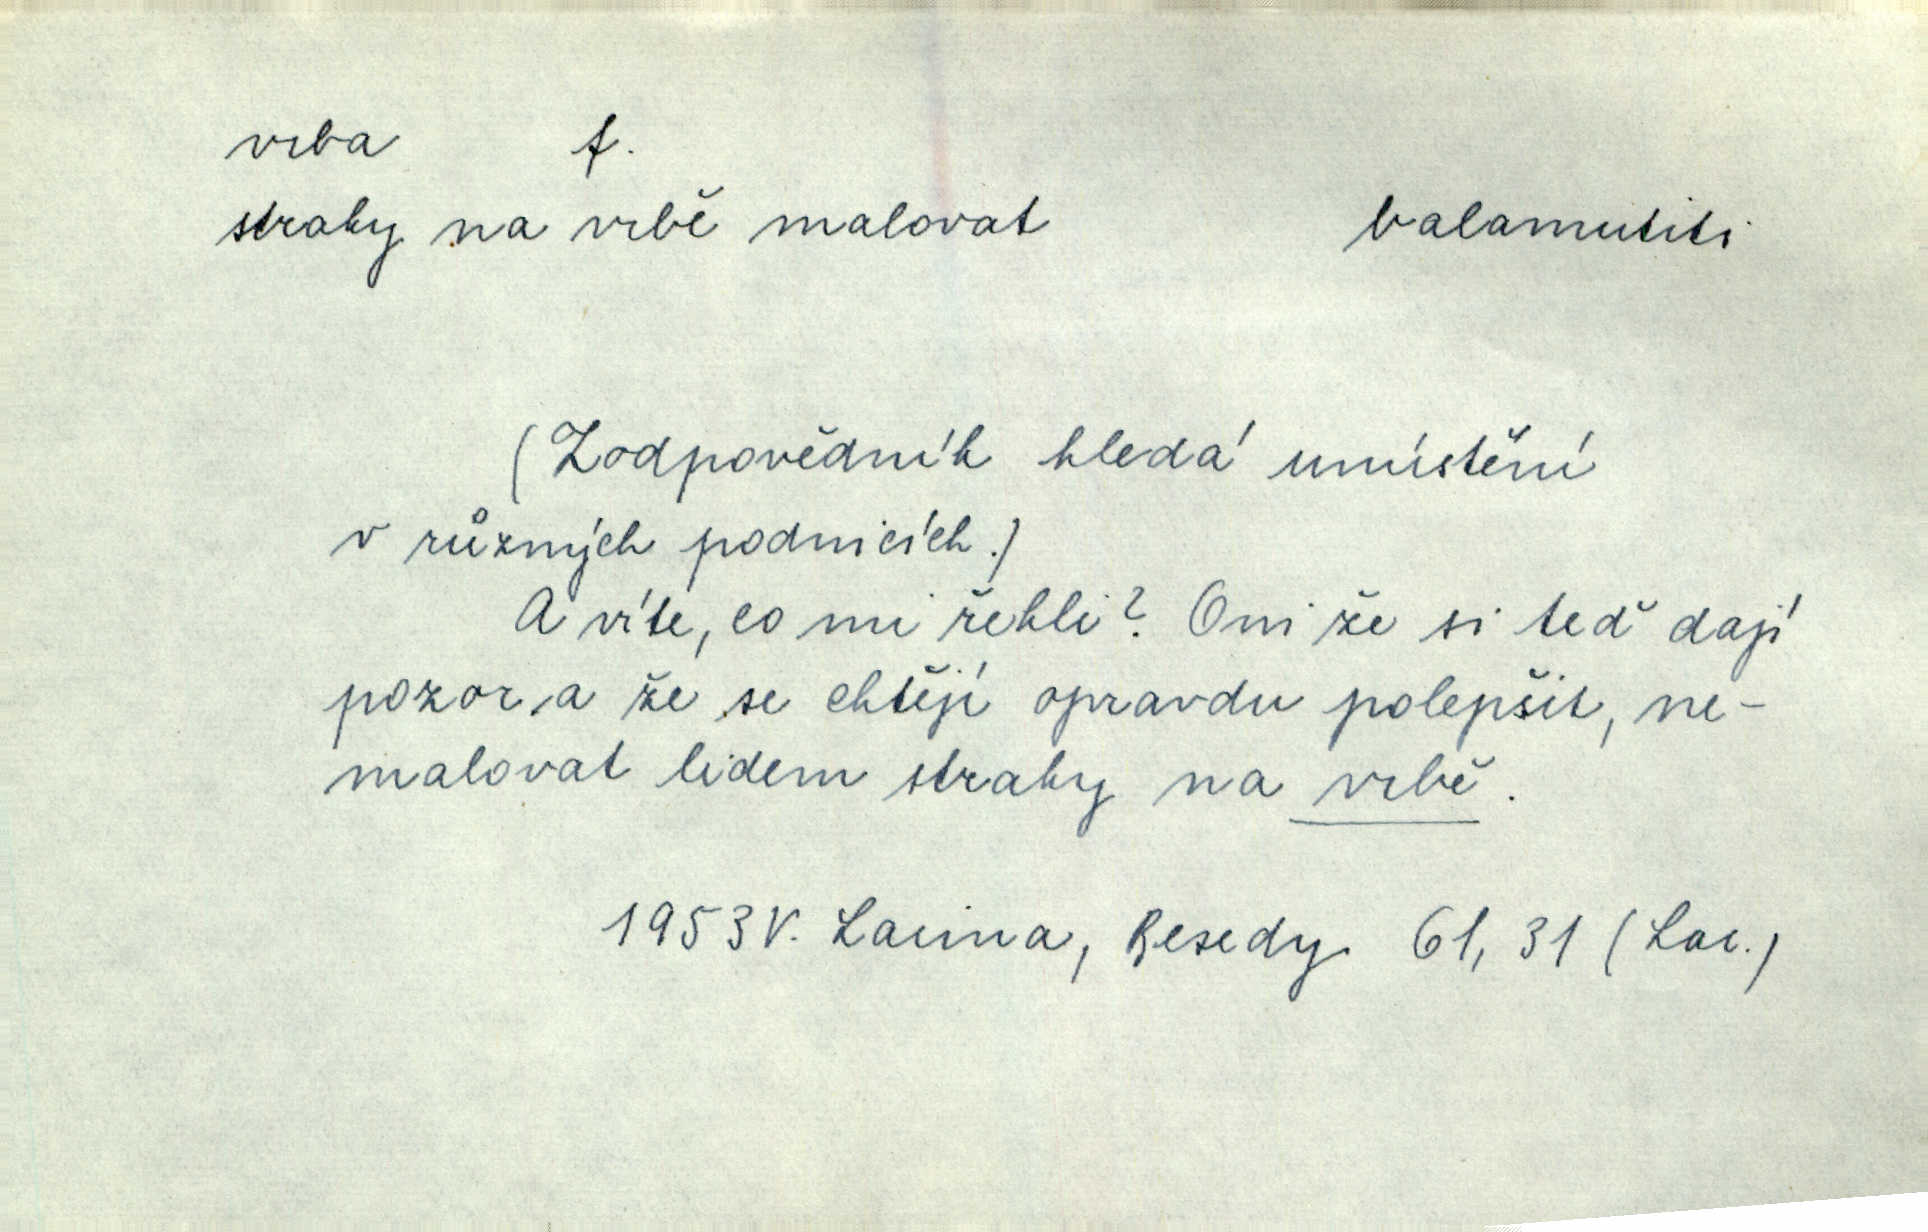 vrba f.
straky na vrbě malovat balamutiti
(Zodpovědník hledá umístění
v různých podnicích.)
A víte, co mi řekli? Oni že si teď dají
pozor, a že se chtějí opravdu polepšit, ne-
malovat lidem straky na vrbě.
1953 V. Lacina, Besedy 61, 31 (Lac.)